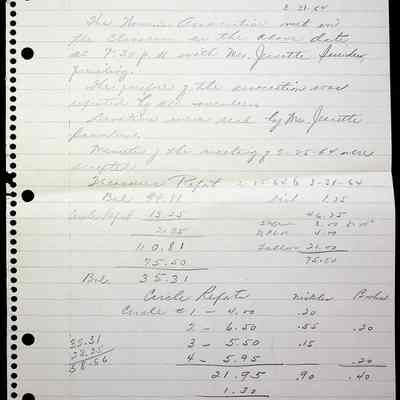 3-31-64
The Women's Association met on
the classroom on the above date
at 7:30 p.m. with Mrs. Jenette Saunders
presiding.
The purpose of the association was
repeated by all members.
Devotions were read by Mrs. Jenette
Saunders.
Minutes of the meeting of 2-25-64 were
accepted.
Treasurers Report 2-25-64 to 3-31-64
Bal. 1.25
Circle Report 46.25
21.95 5.00
110.81 21.00
75.50 75.50
Bal 35.31
Circle Reports Nickles
Circle # 1 - 4.00 .20
2 - 6.50 .55 .20
3 - 5.50 .15
4 - 5.95 .20
21.95 .90 .40
1.30
35.31
23.25
58.56